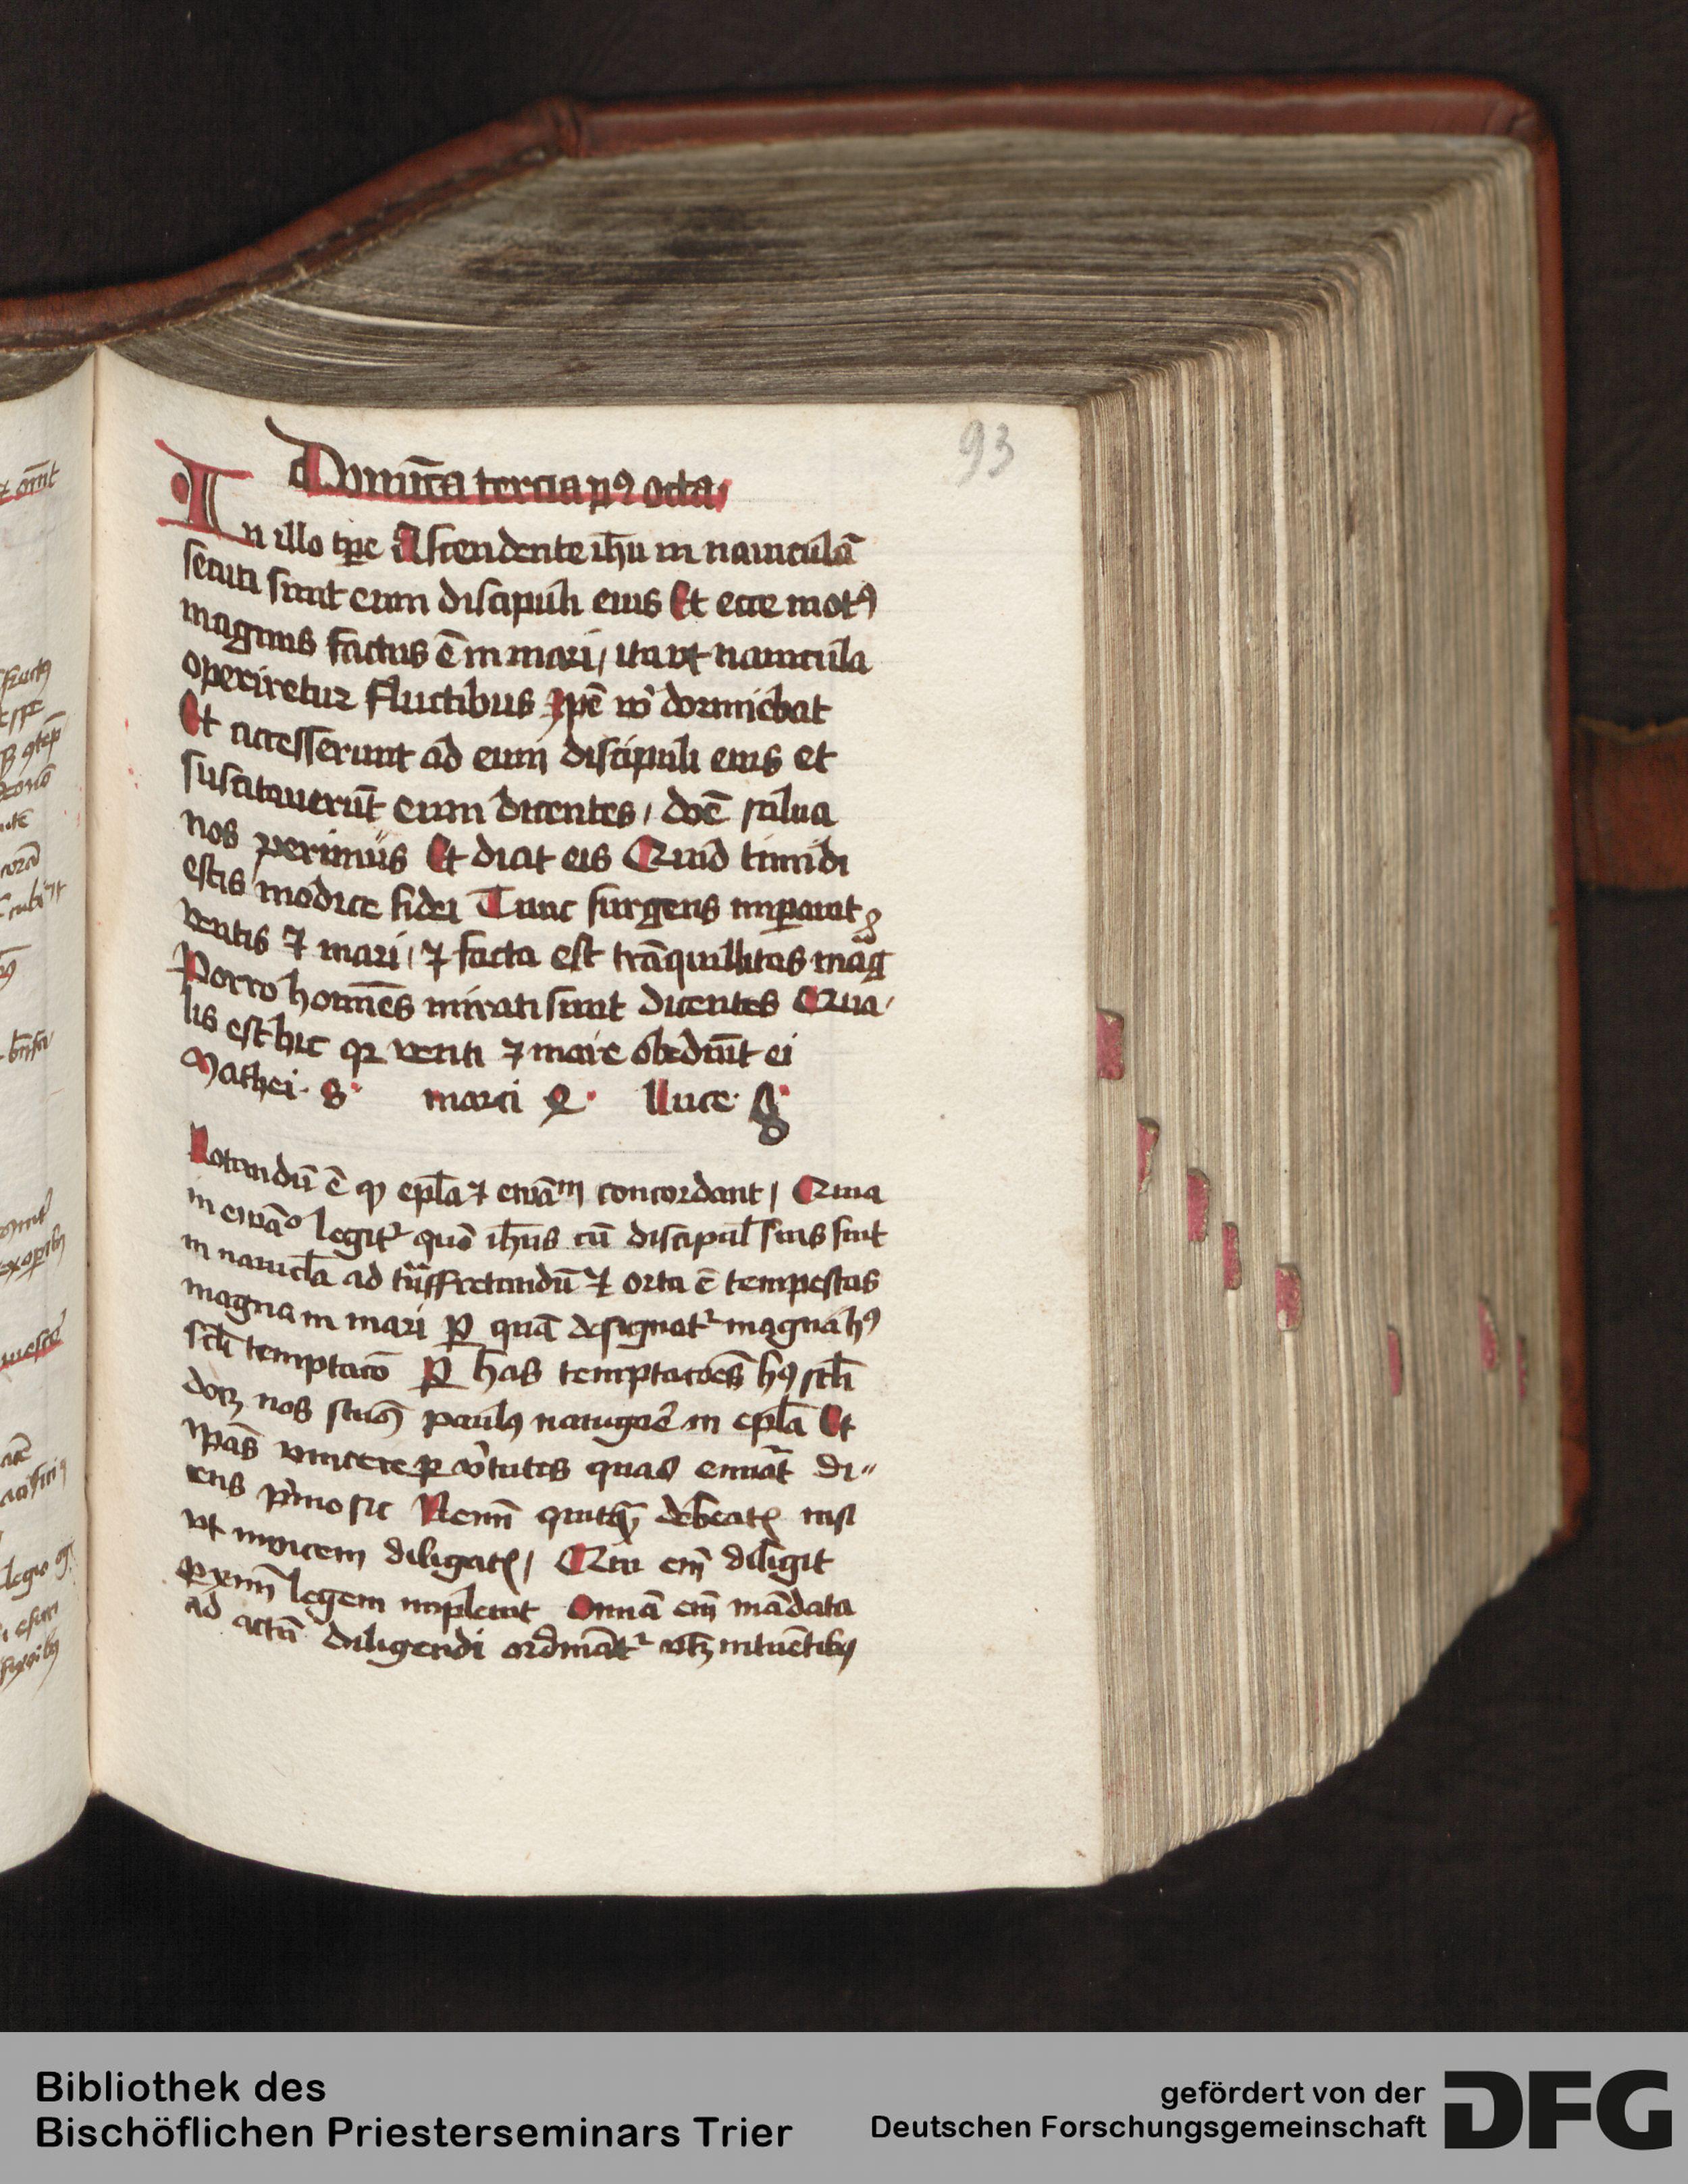 93
Domīca tercia pꝰ octa
In illo tꝑe Ascendente ih̄u in nauiculā
secuti sunt eum discipuli eius Et ecce motꝰ
magnus factus ē in mari / ita vt nauicula
operiretur fluctibus Ipē vͦ dormiebat
Et accesserunt ad eum discipuli eius et
suscitauerūt eum dicentes / dn̄e salua
nos perimus Et dicit eis Quid timidi
estis modice fidei Tunc surgens imꝑauit
ventis ⁊ mari / ⁊ facta est trāquillitas mag
Porro homīes mirati sunt dicentes Qua
lis est hic qꝛ venti ⁊ mare obediūt ei
Mathei · 8 · marci 4 · luce · 8
Notandū ē ꝙ epl̄a ⁊ ewāᵐ concordant / Quia
in ewāº legitᷣ quō ih̄us cū discipul̄ suis fuit
in nauicl̄a ad tͣnsfretandū ⁊ orta ē tempestas
magna in mari ꝑ quā designatᷣ magna hꝰ
scl̄i temptacō Ꝑ has temptacōes hꝰ scl̄i
docꝫ nos sctūs paulꝰ nauigare in epl̄a Et
ip̄as vincere ꝑ vͥtutes quas enuāt di
cens pͥmo sic Nemī quicqͣ debeatꝭ nisi
vt inuicem diligatꝭ / Qui em̄ diligit
ꝓximū legem impleuit Omīa em̄ mādata
ad actū diligendi ordināt ᷣ vtꝫ intuētibꝰ
Bibliothek des
Bischöflichen Priesterseminars Trier
gefördert von der
Deutschen Forschungsgemeinschaft
DFG